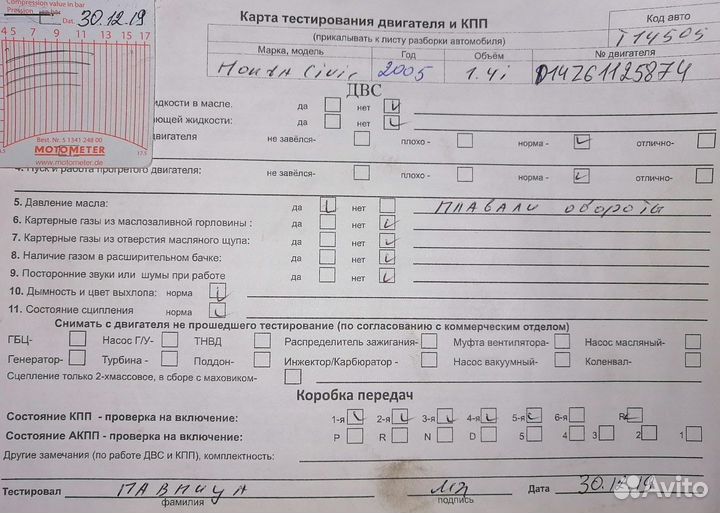 Compression value in bar
Pression en bar
Dat. 30.12.19
4 5 7 9 11 13 15 17
Best. Nr. S 1341 248 00
MOTOMETER
17.5
www.motometer.de
Карта тестирования двигателя и КПП
(прикалывать к листу разборки автомобиля)
Код авто
Т14505
Марка, модель Год Объём № двигателя
Honda Civic 2005 1.4i D14Z61125874
ДВС
идкости в масле. да нет
ющей жидкости: да нет
двигателя не завёлся- плохо - норма - отлично-
4. Пуск и работа прогретого двигателя: не завёлся- плохо - норма - отлично-
5. Давление масла: да нет плавали обороты
6. Картерные газы из маслозаливной горловины : да нет
7. Картерные газы из отверстия масляного щупа: да нет
8. Наличие газом в расширительном бачке: да нет
9. Посторонние звуки или шумы при работе да нет
10. Дымность и цвет выхлопа: норма
11. Состояние сцепления норма
Снимать с двигателя не прошедшего тестирование (по согласованию с коммерческим отделом)
ГБЦ- Насос Г/У- ТНВД Распределитель зажигания- Муфта вентилятора- Насос масляный-
Генератор- Турбина - Поддон- Инжектор/Карбюратор - Насос вакуумный- Коленвал-
Сцепление только 2-хмассовое, в сборе с маховиком-
Коробка передач
Состояние КПП - проверка на включение: 1-я 2-я 3-я 4-я 5-я 6-я R
Состояние АКПП - проверка на включение: P R N D 5 4 3 2 1
Другие замечания (по работе ДВС и КПП), комплектность:
Тестировал Павница Дата 30.12.19
фамилия подпись
Avito